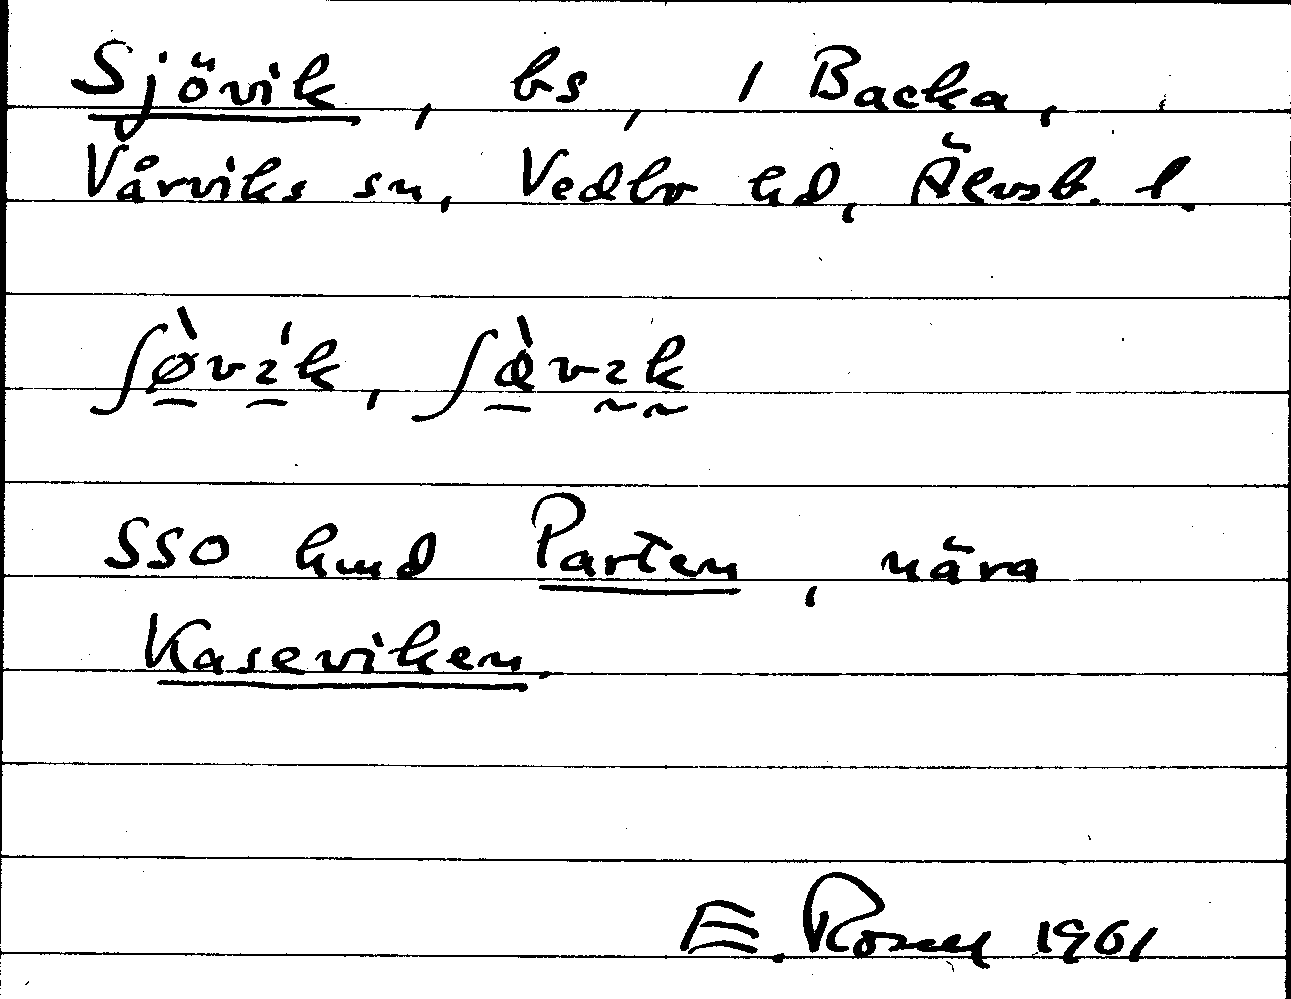 Sjövik, bs, 1 Backa,
Vårviks sn, Vedbo hd, Älvsb. l.
ʃø̀vík, ʃǿvɪk
SSO hmd Parten, nära
Kaseviken.
E. 1961